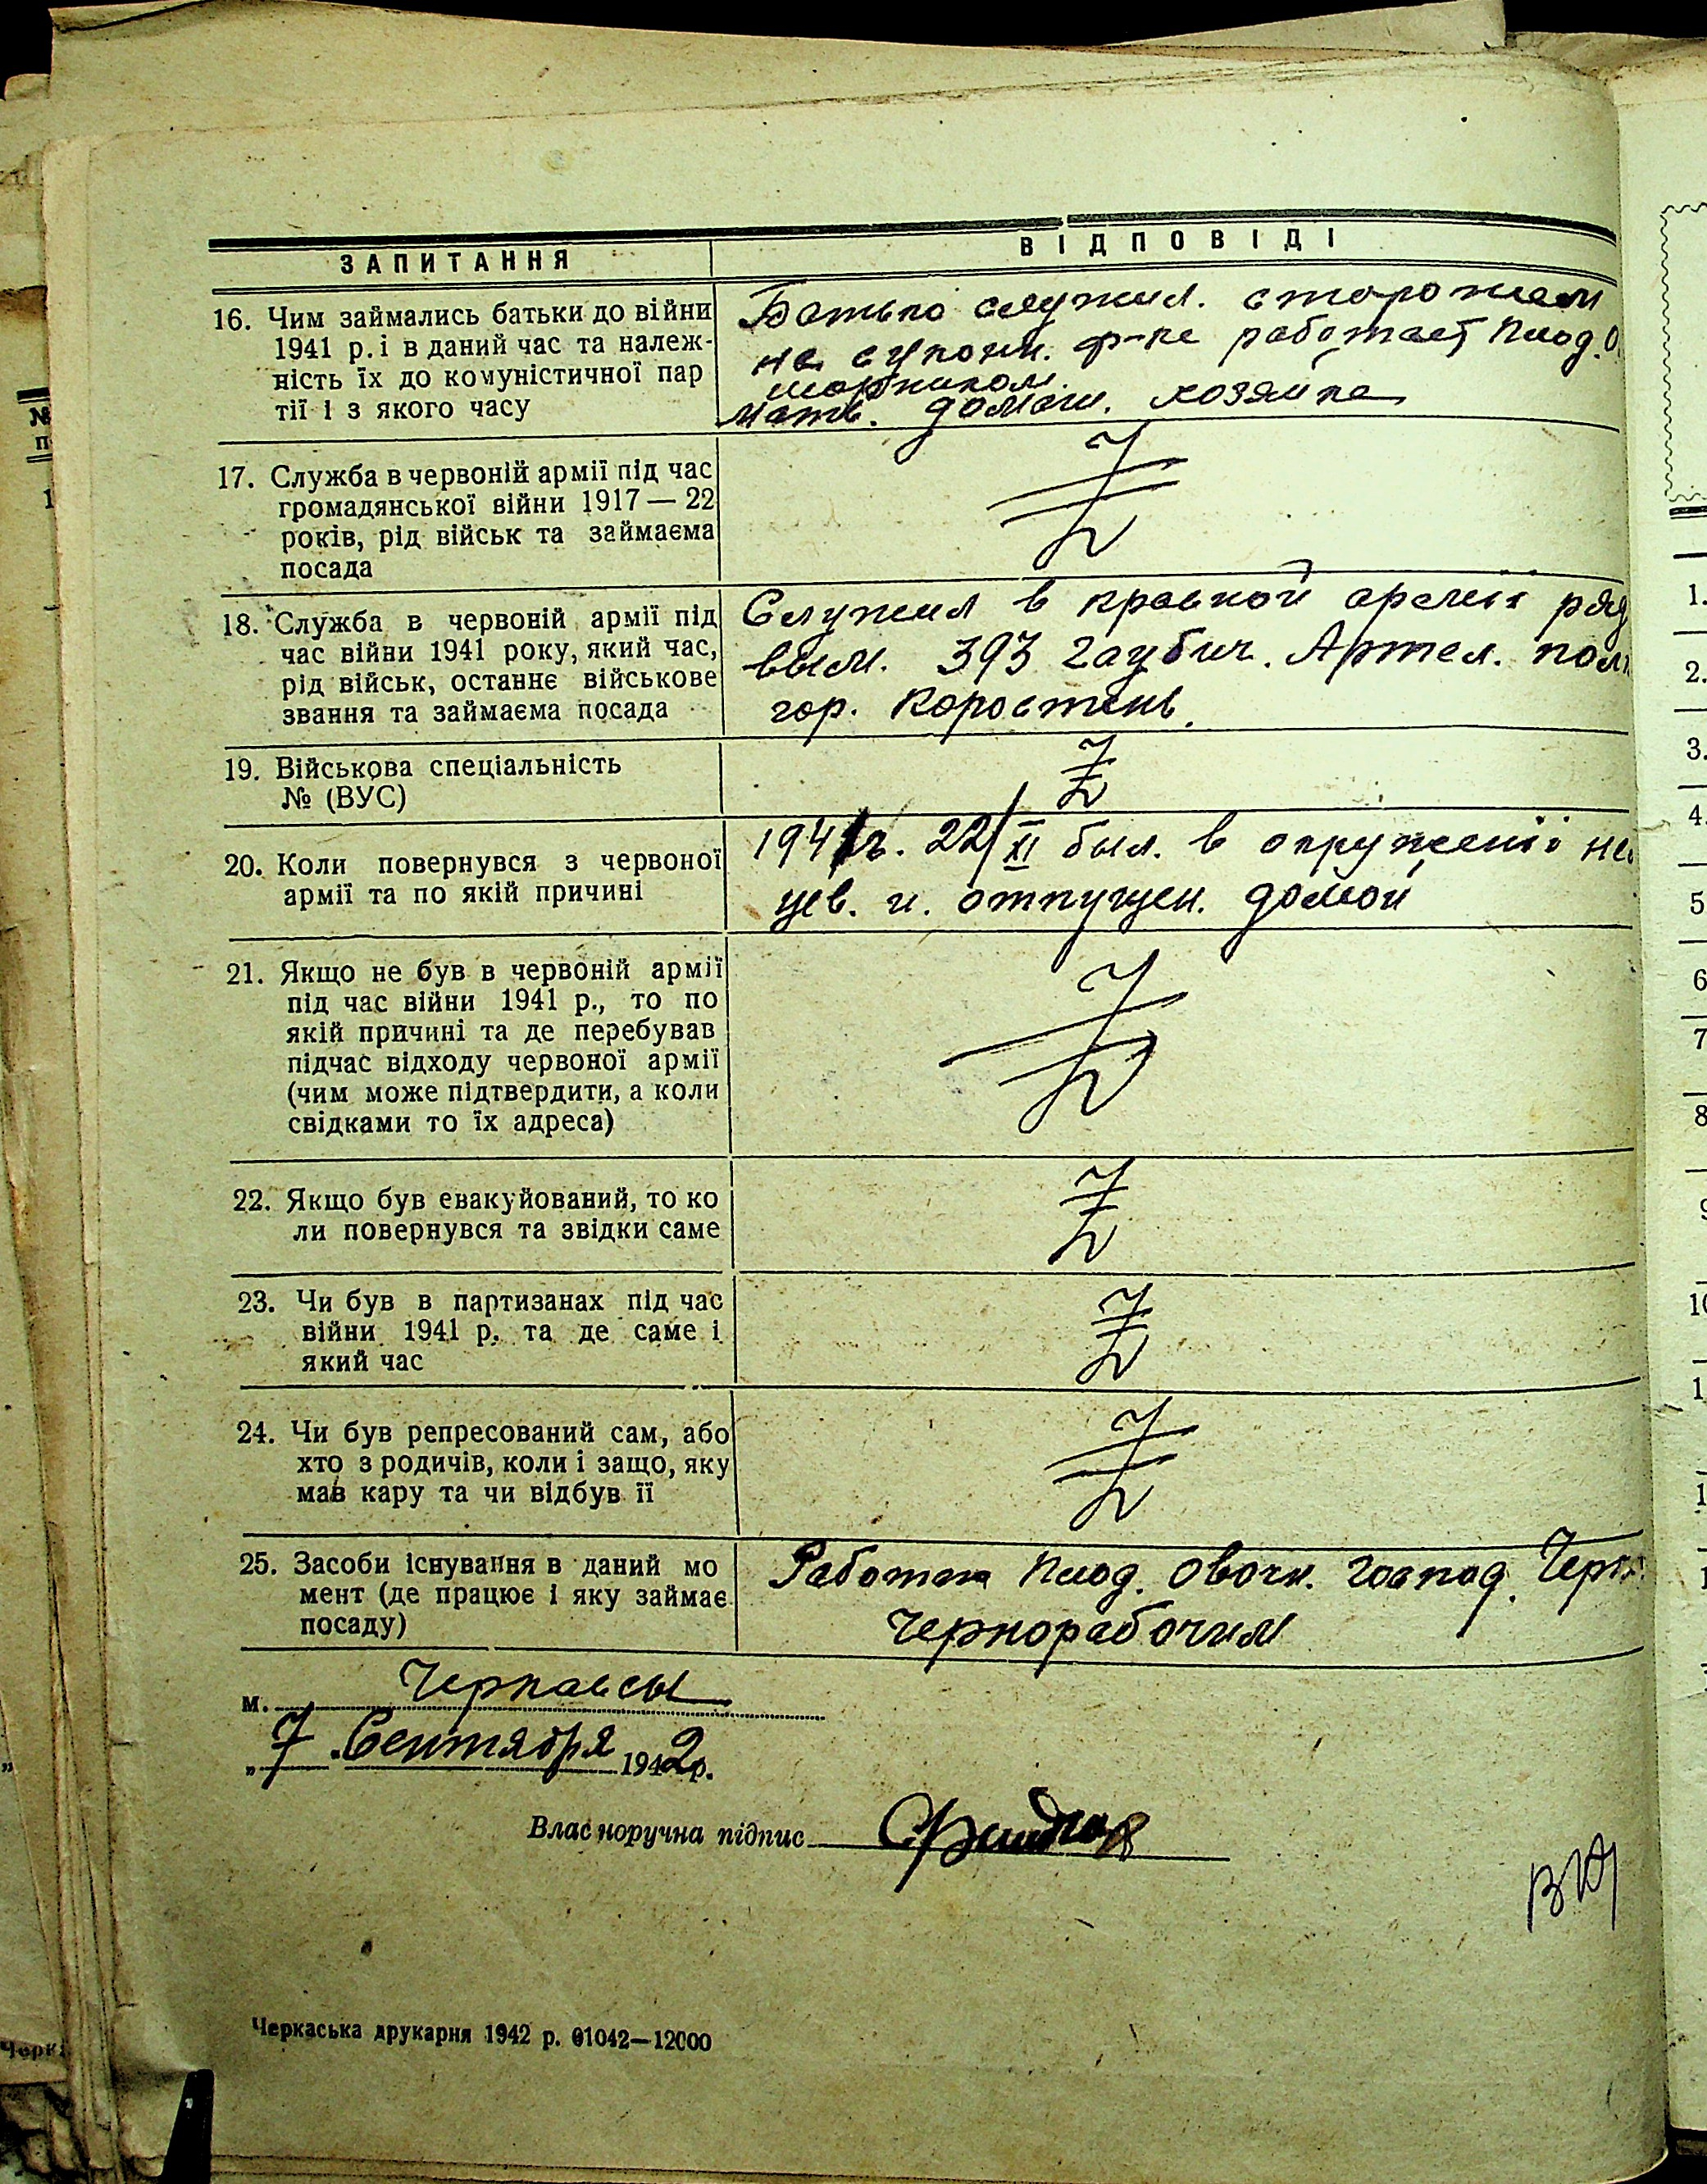 ЗАПИТАННЯ
ВІДПОВІДІ
16. Чим займались батьки до війни
1941 р. і в даний час та належ-
ність їх до комуністичної пар
тії і з якого часу
Батько служил. сторожем
на сукон. ф-ке работает Плод. О
мать. домаш. хозяйка
17. Служба в червоній армії під час
громадянської війни 1917 — 22
років, рід військ та займаєма
посада
Z
18. Служба в червоній армії під
час війни 1941 року, який час,
рід військ, останнє військове
звання та займаєма посада
Служил в красной армии ряд
вым. 393 гаубич. Артел. полк
гор. Коростень.
19. Військова спеціальність
№ (ВУС)
Z
20. Коли повернувся з червоної
армії та по якій причині
1941 г. 22/XI был. в окружении
цев. и. отпущен. домой
21. Якщо не був в червоній армії
під час війни 1941 р., то по
якій причині та де перебував
підчас відходу червоної армії
(чим може підтвердити, а коли
свідками то їх адреса)
Z
22. Якщо був евакуйований, то ко
ли повернувся та звідки саме
Z
23. Чи був в партизанах під час
війни 1941 р. та де саме і
який час
Z
24. Чи був репресований сам, або
хто з родичів, коли і защо, яку
мав кару та чи відбув її
Z
25. Засоби існування в даний мо
мент (де працює і яку займає
посаду)
Плод. Овочн. господ. Черк
Чернорабочим
м. Черкассы
„7 Сентября 1942 р.
Власноручна підпис
Черкаська друкарня 1942 р. 01042—12000